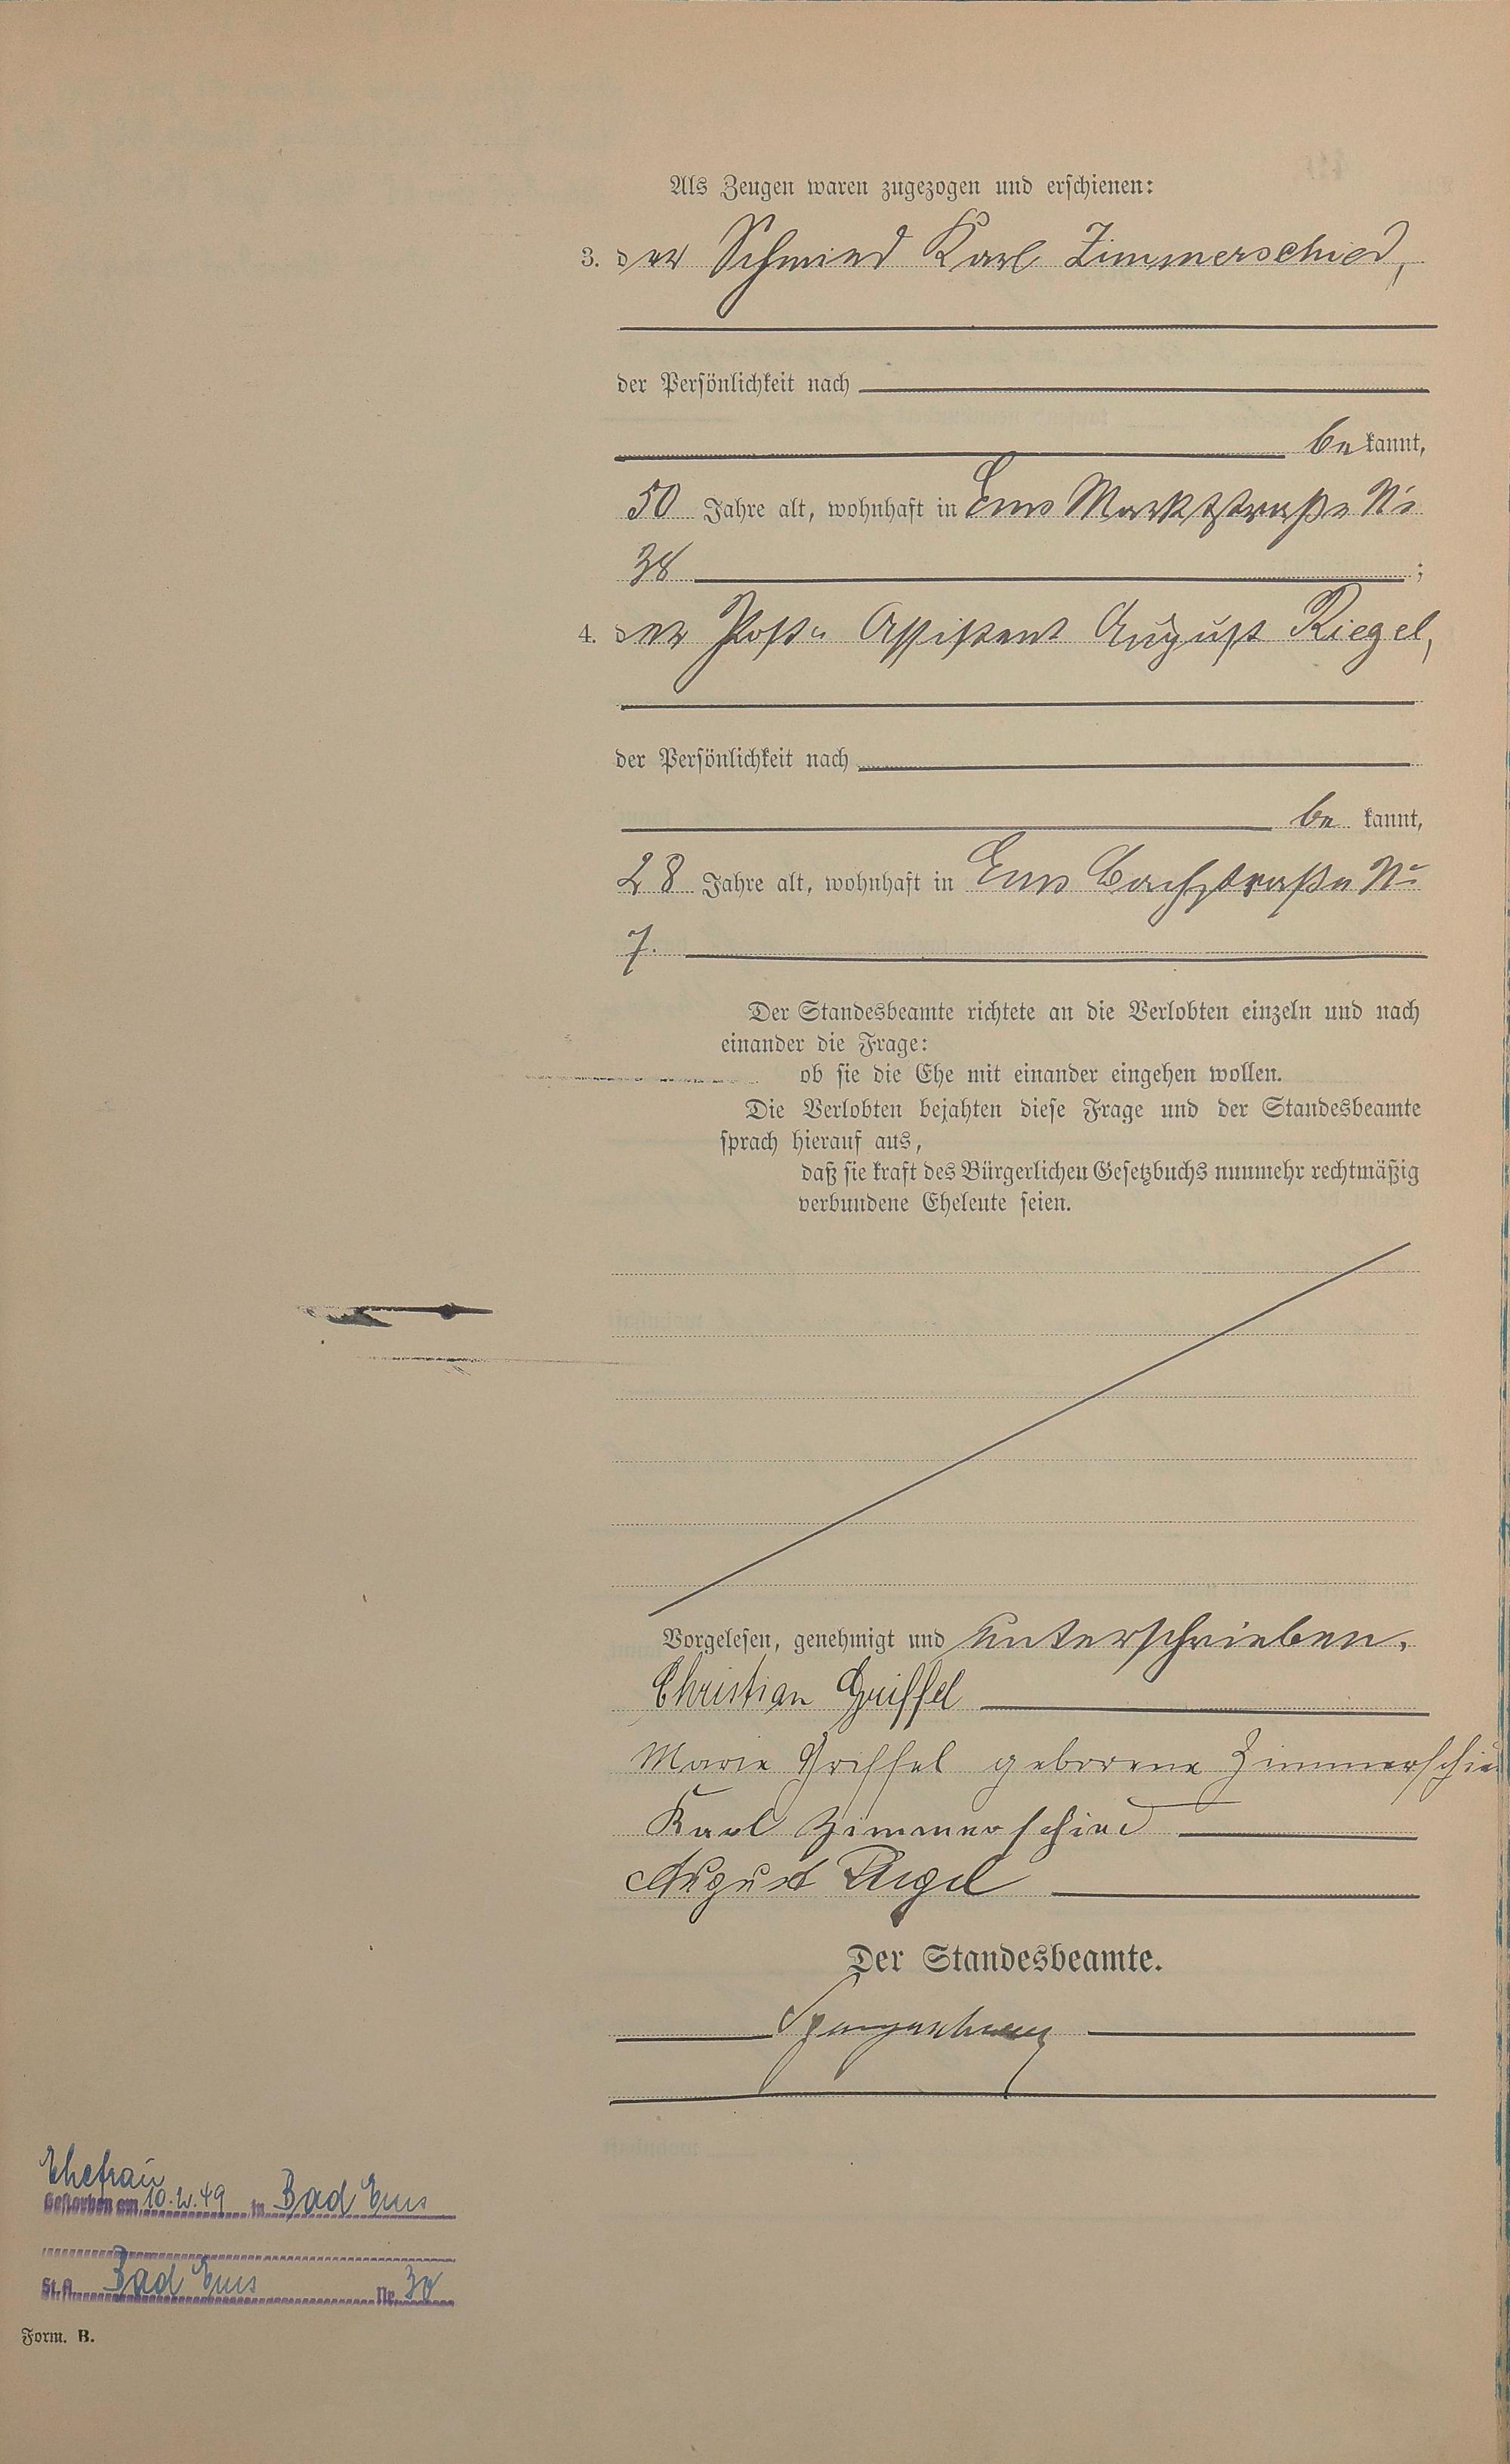 Als Zeugen waren zugezogen und erschienen:
3. der Schmied Karl Zimmerschied,
der Persönlichkeit nach
be kannt,
50 Jahre alt, wohnhaft in Ems Marktstraße No
38 ;
4. der Post- Assistent August Riegel,
der Persönlichkeit nach
be kannt,
28 Jahre alt, wohnhaft in Ems Bachstraße No
7.
Der Standesbeamte richtete an die Verlobten einzeln und nach
einander die Frage:
ob sie die Ehe mit einander eingehen wollen.
Die Verlobten bejahten diese Frage und der Standesbeamte
sprach hierauf aus,
daß sie kraft des Bürgerlichen Gesetzbuchs nunmehr rechtmäßig
verbundene Eheleute seien.
Vorgelesen, genehmigt und unterschrieben.
Christian Griffel
Marie Griffel geborene Zimmerschied
Karl Zimmerschied
August Riegel
Der Standesbeamte.
Ehefrau
Gestorben am 10.2.49 in Bad Ems
St.A. Bad Ems Nr. 30
Form. B.